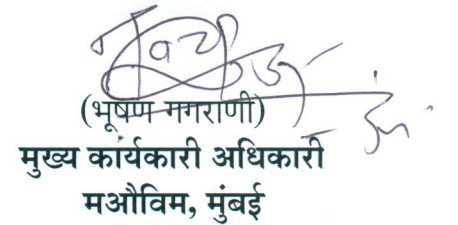 (भूषण गगराणी)
मुख्य कार्यकारी अधिकारी
मऔविम, मुंबई